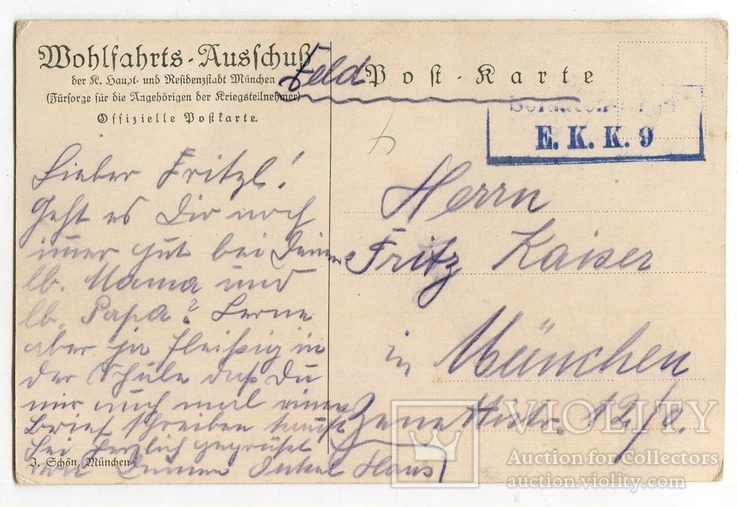 Wohlfahrts-Ausschuß
der K. Haupt- und Residenzstadt München
(Fürsorge für die Angehörigen der Kriegsteilnehmer)
Offizielle Postkarte.
Feld
Post-Karte
E. K. K. 9
Lieber Fritzl!
Geht es Dir noch
imer gut bei Deiner
lb. Mama und
lb. Papa? Lerne
aber ja fleißig in
der Schule daß Du
mir auch mal einen
Brief schreiben kannst
Sei herzlich gegrüßt
von Deinem Onkel Hans
J. Schön, München
Herrn
Fritz Kaiser
in München
Zenettistr. 12/2.
VIOLITY
Auction for Collectors
auction.violity.com